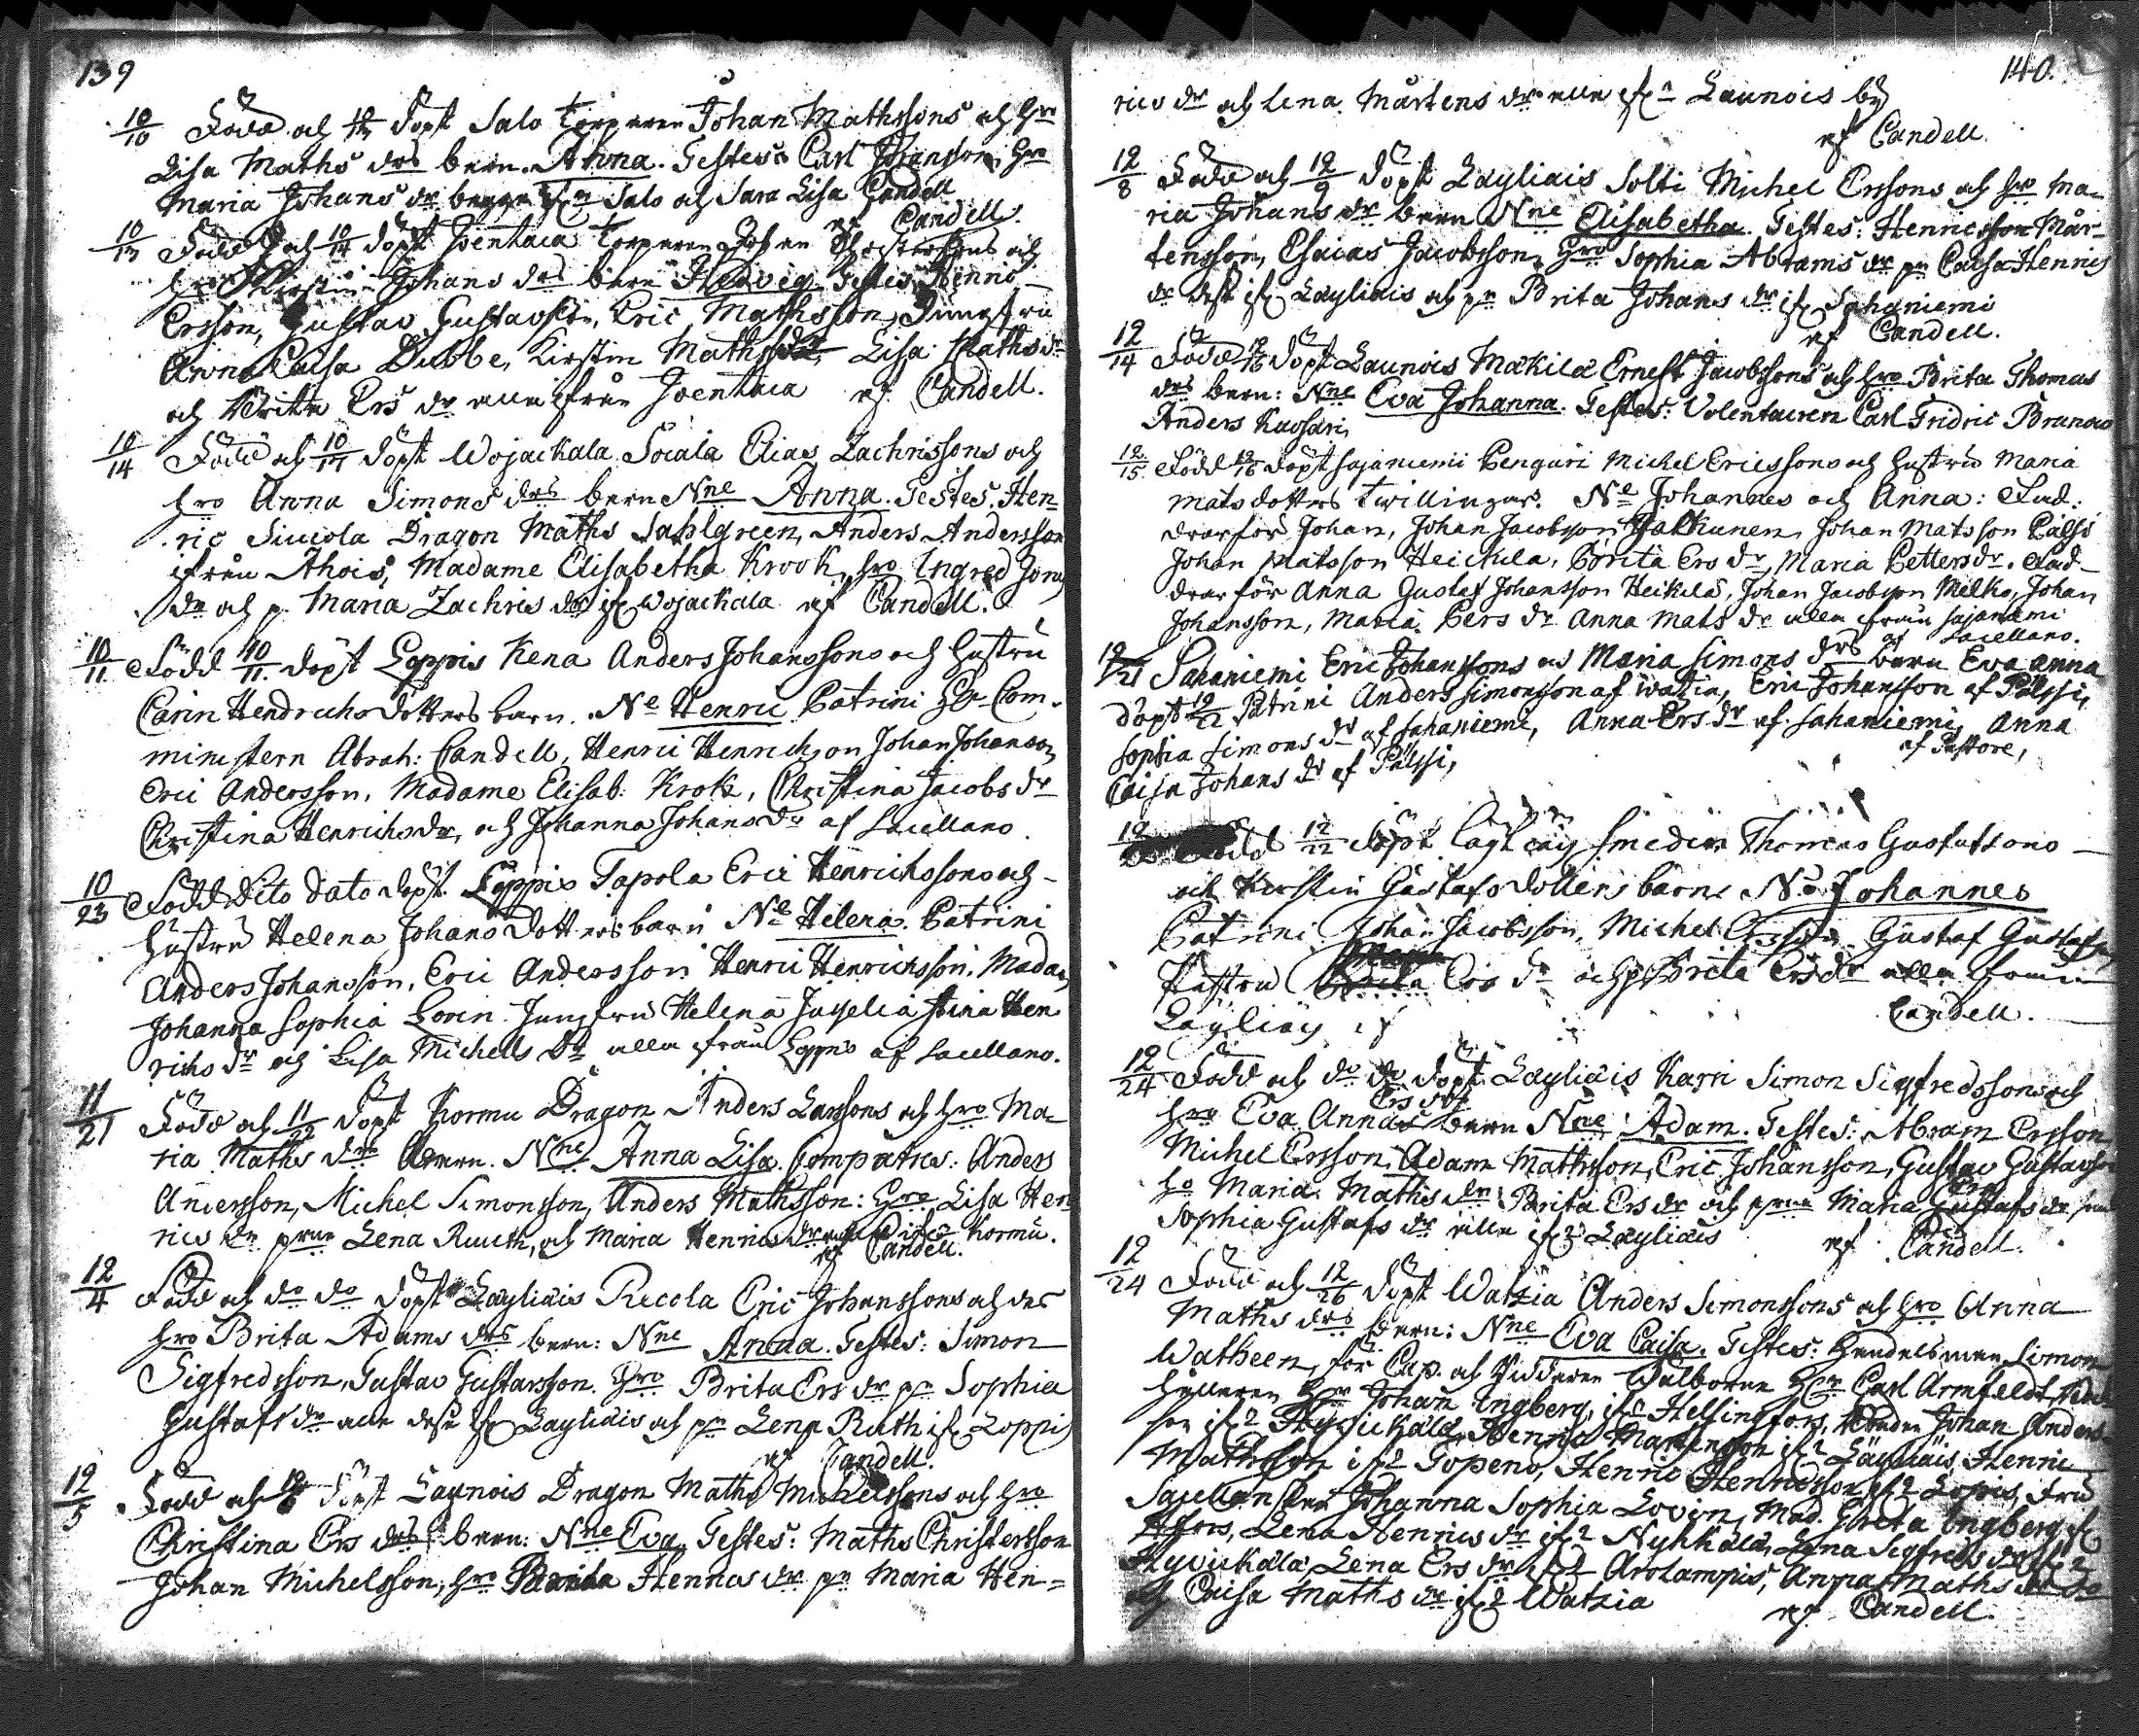 139
10/10 Född och döpt Salo Torparen Johan Mathssons och hro
Lisa Maths drs barn. Anna. Testes: Carl Johansson, hro
Maria Johans dr begge ifrn Salo och Sara Lisa Candell
af Candell.
10/13 Född och 10/14 döpt Joentaca Torparen Johan
hro Kirstin Johans drs barn Hedvig Testes: Henric
Ersson, Gustav Gustavsson, Eric Mathsson, Jungfru
Anna Caisa Dubbe, Kirstin Maths dr, Lisa Maths dr
och Brita Ers dr alla ifrån Joentaca af Candell.
10/14 Född och 10/17 döpt Wojackala Socala Elias Zachrissons och
hro Anna Simons drs barn Nne Anna. Testes: Hen-
ric Dragon Maths Sahlgreen, Anders Andersson
ifrån Ahois, Madame Elisabetha Krook, hro Ingred Jons
dr och p. Maria Zachris dr ifr Wojackala af Candell.
10/11 Född 10/11 döpt Loppis Kena Anders Johanssons och hustru
Carin Hendrichsdotters barn. Ne Henric Patrini Hr Com-
ministern Abrah: Candell, Henric Henrichson Johan Johanson,
Eric Andersson, Madame Elisab: Krok, Christina Jacobs dr
Christina Henrichsdr, och Johanna Johans dr af Sacellano.
10/23 Född Dito Dato döpt Loppis Tapola Eric Henrichssons och
hustru Helena Johans Dotters barn Ne Helena. Patrini
Anders Johansson, Eric Andersson Henric Henrichsson. Madam
Johanna Sophia Lovin. Jungfru Helena Juselia Stina Hen
richs dr och Lisa Michels dr alla från Loppis af Sacellano.
11/21 Född och 11/22 döpt Kormu Dragon Anders Larssons och hro Ma-
ria Maths drs barn. Nne Anna Lisa. Compatres: Anders
Andersson, Michel Simonsson, Anders Mathsson: hro Lisa Hen
rics dr Lena Ruuth, och Maria Henrics dr Kormu.
af Candell.
12/4 Född och do do döpt Läyliäis Recola Eric Johanssons och des
hro Brita Adams drs barn: Nne Anna. Testes: Simon
Sigfredsson, Gustav Gustavsson. hro Brita Ers dr pn Sophia
Gustafs dr alla desse ifr Läyliäis och pn Lena Ruth ifr Loppis
af Candell.
12/5 Född och 12/6 döpt Launois Dragon Maths Michelssons och hro
Christina Ers drs barn: Nne Eva Testes: Maths Christersson
Johan Michelsson, hro Henrics dr pn Maria Hen=
140.
rics dr och Lena Mårtens dr alla ifrn Launois by
af Candell.
12/8 Född och 12/9 döpt Läyliäis Solti Michel Erssons och hro Ma-
ria Johans dr barn Nne Elisabetha. Testes: Henricsson Mår-
tensson, Esaias Jacobsson, hro Sophia Abrams dr pn Caisa Henrics
dr ifr Läyliäis och pn Brita Johans dr ifr Sajaniemi
af Candell.
12/14 Född 12/16 döpt Launois Mäkilä Ernest Jacobssons och hro Brita Thomas
drs barn: Nne Eva Johanna. Testes: Volentairen Carl Fridric Brunow
Anders Kuusari,
12/15 Född 12/16 döpt Sajaniemi Penguri Michel Ericssons och hustru Maria
Matsdotters Twillingar. Ne Johannes och Anna: Fad:
drar för Johan, Johan Jacobsson, Johan Matsson Pälsi
Johan Matsson Heickila, Brita Ers dr, Maria Petters dr. Fad-
drar för Anna Gustaf Johansson Heikilä, Johan Jacobsson Melko, Johan
Johansson, Maria Pers dr Anna Mats dr alla från Sajaniemi
af Sacellano.
12/21 Sahaniemi Eric Johanssons och Maria Simons drs barn Eva Anna
döpt 12/22 Patrini Anders Simonsson af Watzia, Eric Johansson af Pälssi,
Sophia Simons dr af Sahaniemi, Anna Ers dr af Sahaniemi, Anna
Caisa Johans dr af Pälssi, af Pastore,
12 Född 12/22 döpt Läyliäis Smeden Thomas Gustafsons
och Kirstin Gustafsdotters barn Ne Johannes
Patrini Johan Jacobsson, Michel Ersson Gustaf Gustafson
Hustru Ers dr och p Brita Ers dr alla från
Läyliäis af Candell.
12/24 Född och do do döpt Läyliäis Karri Simon Sigfredssons och
hro Eva Annas Ers drs barn Nne: Adam. Testes: Abram Ersson
Michel Ersson, Adam Mathsson, Eric Johansson, Gustav Gustavsson
ho Maria Maths dr Brita Ers dr och Maria Gustafs dr
Sophia Gustafs dr alla ifrn Läyliäis af Candell.
12/24 Född och 12/26 döpt Watzia Anders Simonssons och hro Anna
Maths drs barn: Nne Eva Caisa. Testes: Handelsman Simon
Watheen, för Cap. och Riddaren Wälborne Herr Carl Armfeldt,
hållaren Hr Johan Ingberg, ifrn Helsingfors, Johan Anders-
son ifrn Hyvickälä, Henric Mårtensson ifr Läyliäis Henric
Mathsson ifr Topeno, Henric Henricsson ifr Loppis, Fru
Sacellanskan Johanna Sophia Lovin, Mad. Greta Ingberg ifr
Hfors, Lena Henrics dr ifr Nyhkälä, Lena Sigfreds dr ifr
Hyvickälä Lena Ers dr ifr Arolampis, Anna Maths dr
och Caisa Maths dr ifr Watzia af Candell.